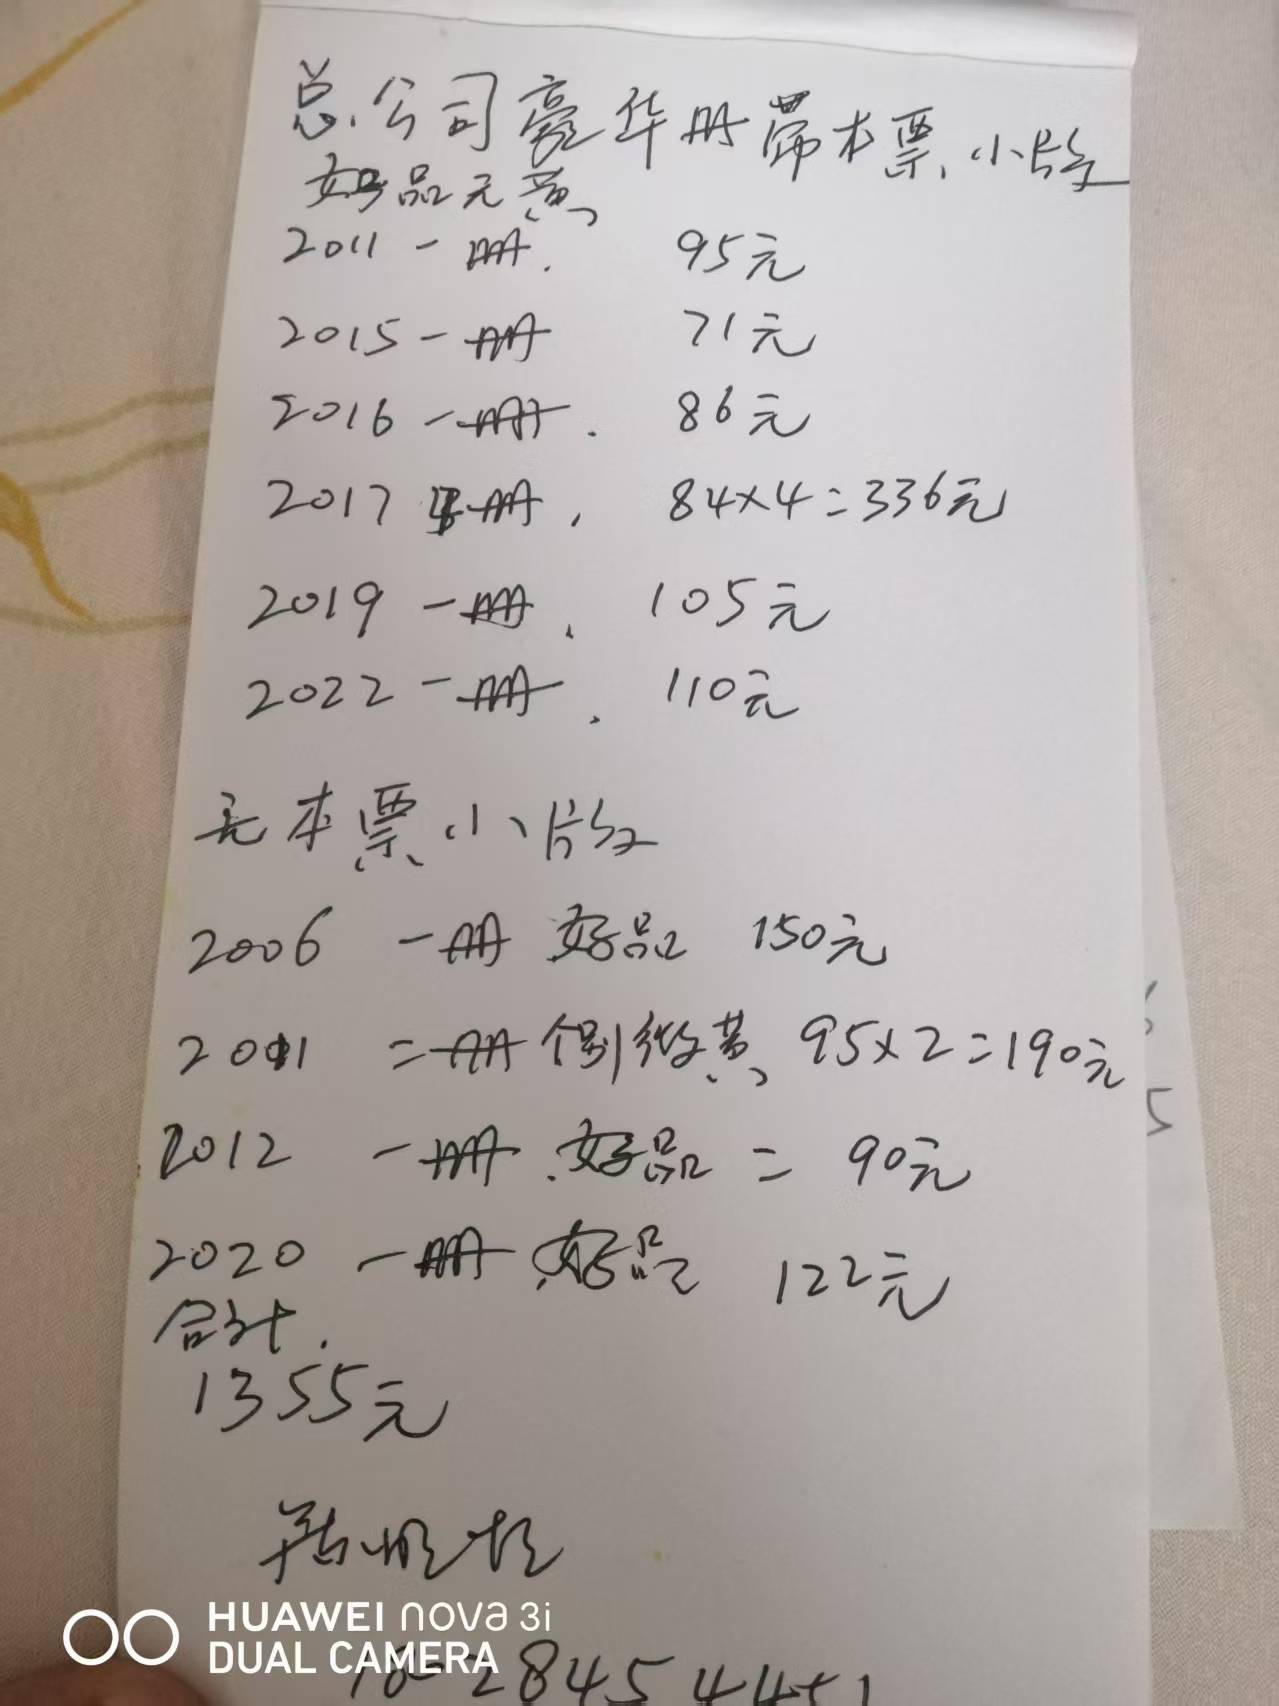 总公司豪华册带本票、小版
好品无黄
2011一册. 95元
2015一册 71元
2016一册. 86元
2017 4册, 84×4=336元
2019一册、 105元
2022一册. 110元
无本票小版
2006 一册 好品 150元
2011 二册 个别微黄 95×2=190元
2012 一册.好品= 90元
2020 一册.好品 122元
合计.
1355元
HUAWEI nova 3i
DUAL CAMERA